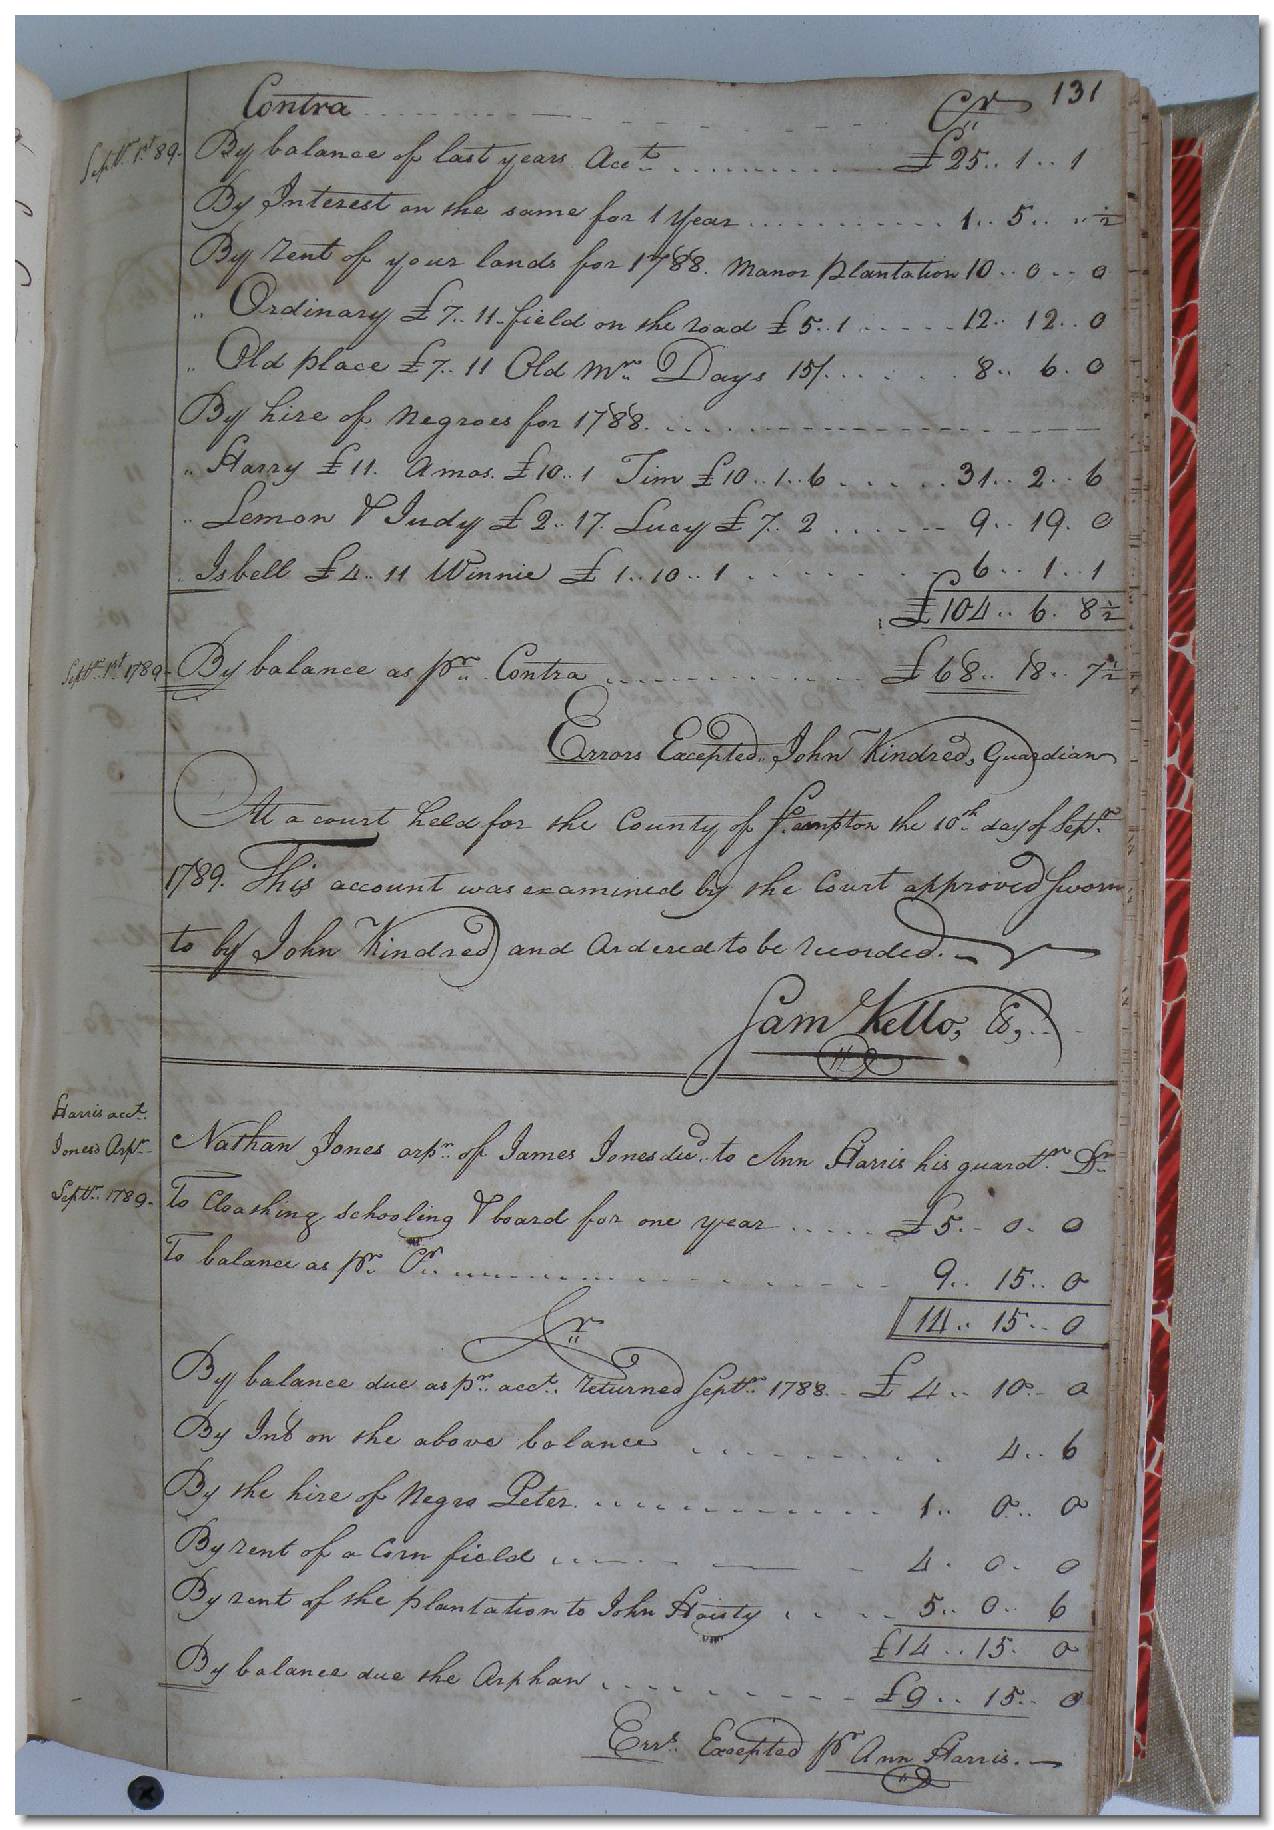 131
Contra Cr
Septr. 1st 89. By balance of last years Acct. £25.. 1.. 1
By Interest on the same for 1 Year 1.. 5.. .. ½
By rent of your lands for 1788. Manor plantation 10.. 0.. 0
.. Ordinary £7.. 11. field on the road £5.. 1 12.. 12.. 0
.. Old place £7.. 11 Old Mrs. Days 15/. 8.. 6. 0
By hire of Negroes for 1788.
.. Harry £11. Amos. £10.. 1 Tim £10.. 1.. 6 31.. 2.. 6
.. Lemon & Judy £2.. 17. Lucy £7.. 2 9.. 19. 0
.. Isbell £4.. 11 Winnie £1.. 10.. 1 6.. 1.. 1
£104.. 6. 8½
Septr. 1st 1789 By balance as pr. Contra £68.. 18.. 7½
Errors Excepted.. John Kindred, Guardian
At a court held for the County of S.ampton the 10th day of Septr.
1789. This account was examined by the Court approved sworn
to by John Kindred and Ordered to be recorded.
Sam Kello, C,
Harris acct.
Jones's Orpn.
Nathan Jones orpn. of James Jones decd. to Ann Harris his guardn. Dr
Septr. 1789. To Cloathing schooling & board for one year £5.. 0. 0
To balance as pr. Cr. 9.. 15.. 0
14.. 15.. 0
Cr
By balance due as pr. acct. returned Septr. 1788. £4.. 10.. 0
By Int on the above balance 4.. 6
By the hire of Negro Peter. 1.. 0.. 0
By rent of a Corn field 4. 0. 0
By rent of the plantation to John Hoisty 5.. 0.. 6
£14.. 15. 0
By balance due the Orphan £9.. 15.. 0
Errs. Excepted pr Ann Harris.